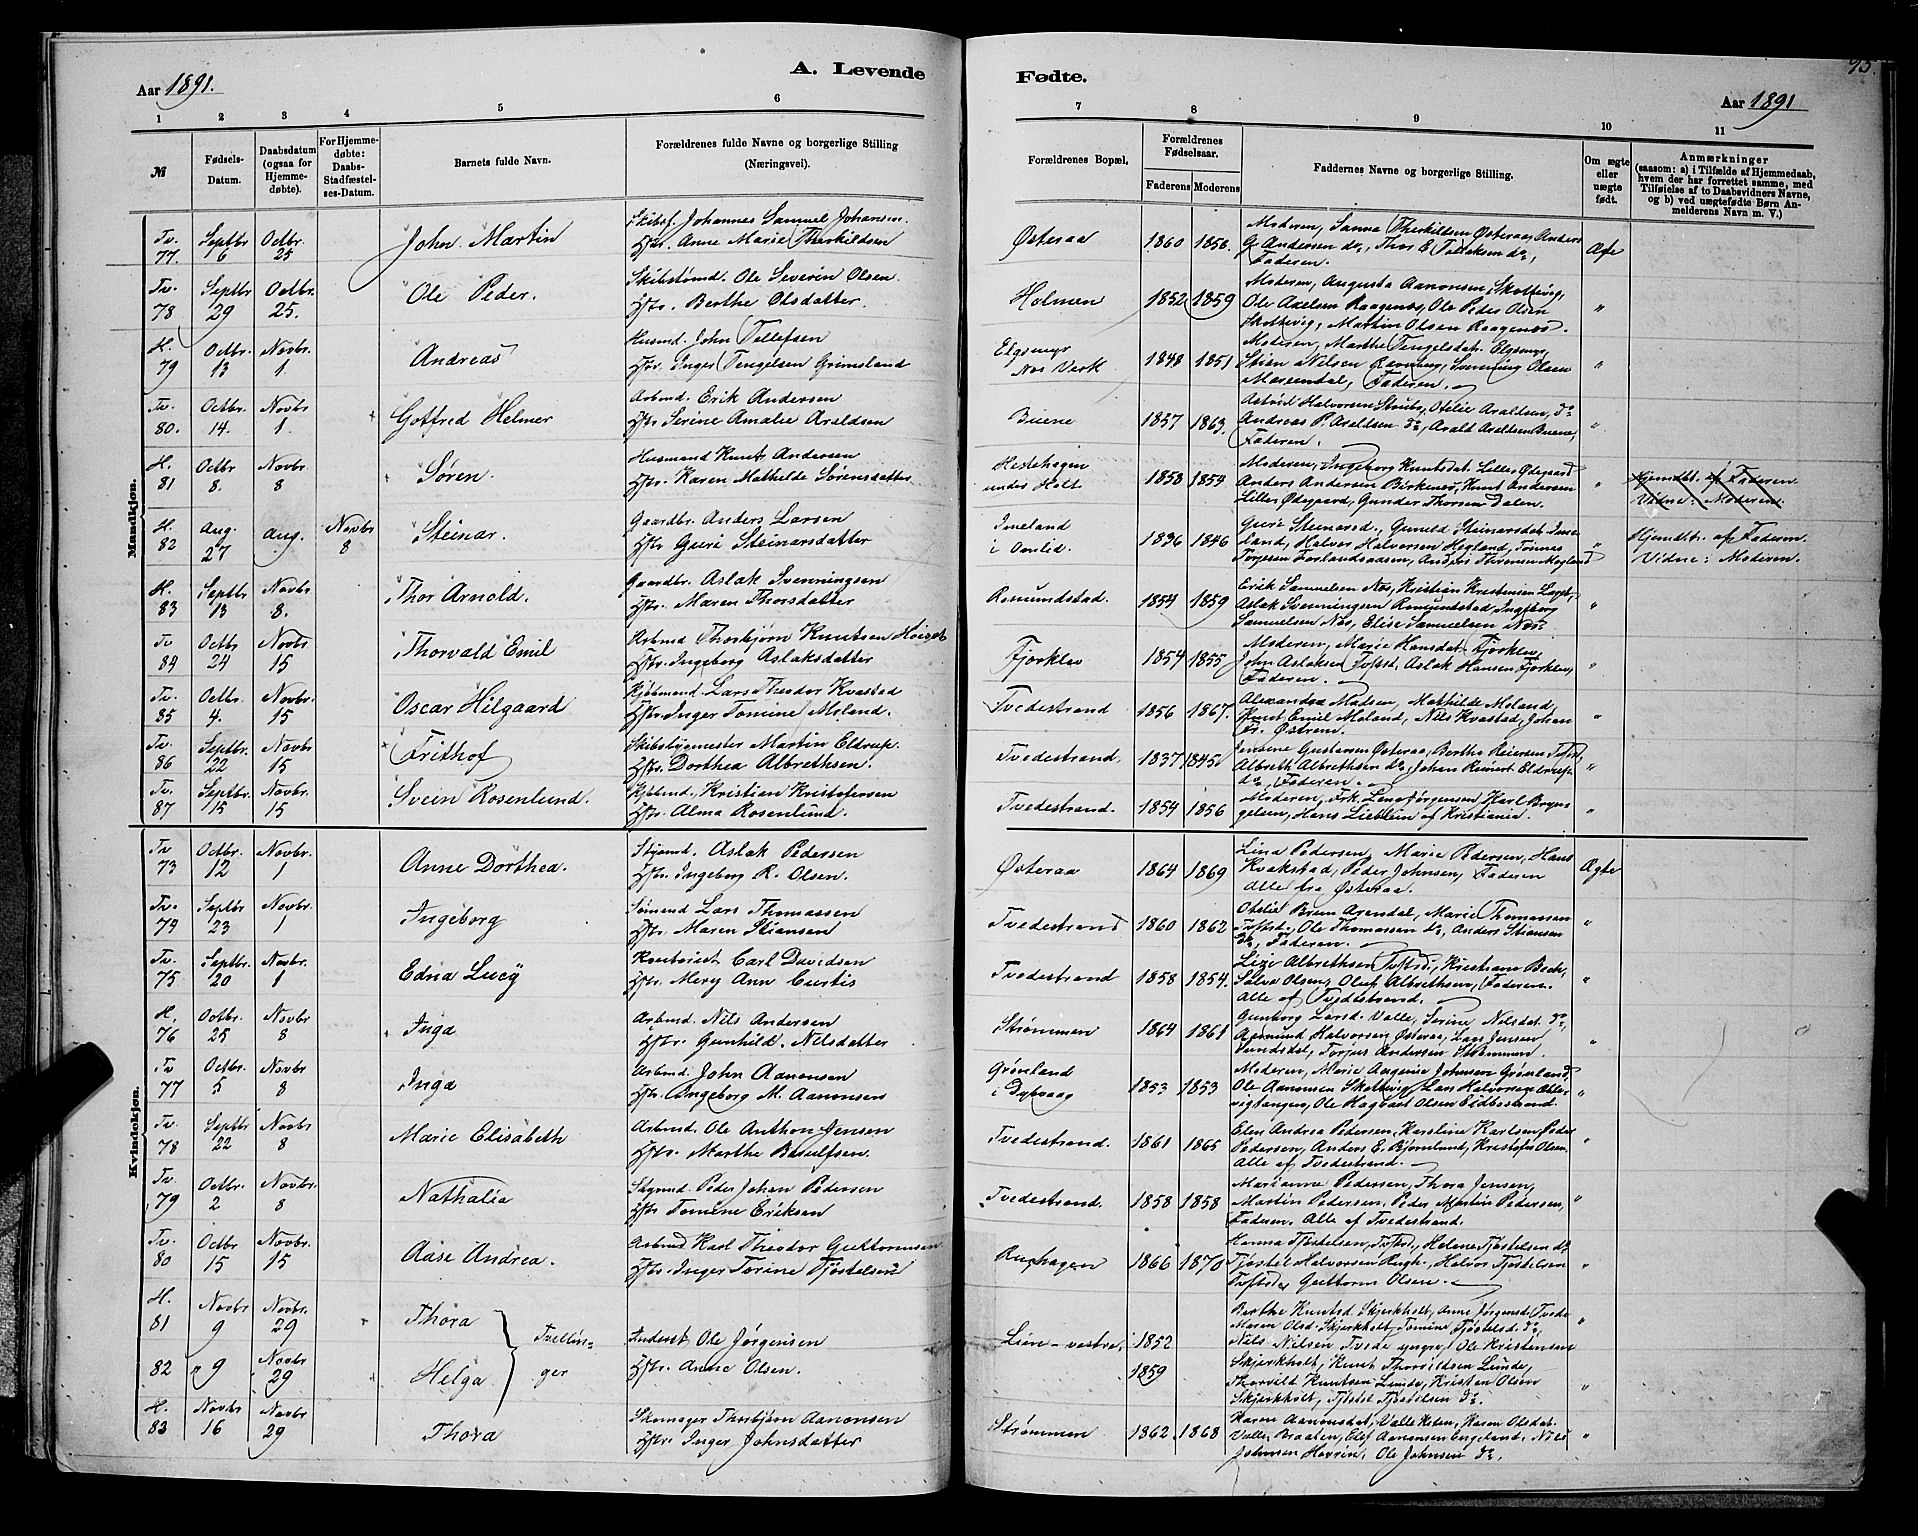 A. Levende Fødte.
95.
Aar 1891.
Aar 1891
1 2 3 4 5 6 7 8 9 10 11
№
Fødsels-Datum.
Daabsdatum (ogsaa for Hjemmedøbte).
For Hjemmedøbte: Daabs-Stadfæstelses-Datum.
Barnets fulde Navn.
Forældrenes fulde Navne og borgerlige Stilling (Næringsvei).
Forældrenes Bopæl.
Forældrenes Fødselsaar.
Faderens Moderens
Faddernes Navne og borgerlige Stilling.
Om ægte eller uægte født.
Anmærkninger
(saasom: a) i Tilfælde af Hjemmedaab, hvem der har forrettet samme, med Tilføielse af to Daabsvidners Navne, og b) ved uægtefødte Børn Anmelderens Navn m. V.)
Mandkjøn.
Tv. 77. Septbr 6 Octbr. 25 John Martin Skibsf. Johannes Samuel Johansen. Hstr. Anne Marie Therkildsen Østeraa 1860 1856. Moderen, Sanna Therkildsen Østeraa, Anders G. Andersen do, Thor E. Tellaksen do, Faderen. Ægte
Tv. 78 Septbr 29 Octbr. 25. Ole Peder. Skibstømd. Ole Severin Olsen. Hstr. Berthe Olsdatter Holmen 1852 1859 Moderen, Augusta Aanonsen, Skottevig, Ole Axelsen Kaagenæs, Ole Peder Olsen Skottevig, Martin Olsen Kaagenæs. "
H. 79 Octbr. 13 Novbr. 1 Andreas Husmd. John Tellefsen Hstr. Inger Tengelsen Grimsland Elgsmyr Nes Verk 1848 1851 Moderen, Marthe Tengelsdat. Elgsmyr, Stian Nilsen Ravnberg, Svenning Olsen Marendal, Faderen. "
Tv. 80. Octbr. 14. Novbr 1. Gotfred Helmer Arbmd. Erik Andersen Hstr Serine Amalie Araldsen Buene 1857 1863. Astrid Halvorsen Strube, Otelie Araldsen, do Andreas P. Araldsen do, Arald Araldsen Buene, Faderen. "
H. 81 Octbr 8. Novbr. 8 Søren. Husmand Knut Andersen Hstr. Karen Mathilde Sørensdatter Hestehagen under Holt 1858 1854 Moderen, Ingeborg Knutsdat. Lille Ødegaard Anders Andersen Birkenes, Knut Andersen Lille Ødegaard, Gunder Thorsen Dalen. " Hjemdbt. af Faderen. Vidne: Moderen.
H. 82 Aug. 27 Aug. Novbr 8 Steinar. Gaardbr. Anders Larsen Hstr Guri Steinarsdatter Imeland i Omlid. 1836 1846 Guri Steinarsd., Gunild Steinarsdat. Imeland, Halvor Halvorsen Hegland, Tønnes Torjesen Forlandsaasen, " Hjemdbt. af Faderen. Vidne: Moderen.
H. 83 Septbr 13 Novbr 8. Thor Arnold. Gaardbr. Aslak Svenningsen Hstr. Maren Thorsdatter Romundstad. 1854 1859 Erik Samuelsen Næs, Kristian Kristensen Aslak Svenningsen Romundstad, Ingeborg Samuelsen Næs, Elise Samuelsen Næs. "
Tv 84 Octbr. 24 Novbr 15 Thorvald Emil Arbmd Thorbjørn Knutsen Hstr. Ingeborg Aslaksdatter Fjorklev 1854 1855 Moderen, Marie Hansdat. Fjorklev, John Aslaksen Tvftst, Aslak Hansen Fjorklev, Faderen. "
Tv. 85 Octbr. 4. Novbr. 15 Oscar Hilgaard Kjøbmand. Lars Theodor Kvastad Hstr. Inger Tomine Moland. Tvedestrand 1856 1867. Alexandra Madsen, Mathilde Moland, Knut Emil Moland, Nils Kvastad, Johan Fr. Østrem. "
Tv. 86 Septbr. 22 Novbr 15 Frithof Skibsbygmester Martin Eldrup. Hstr. Dorthea Albrethsen. Tvedestrand. 1837 1845 Jensine Gustavsen Østeraa, Berthe Reiersen Tvftst Albreth Albrethsen do, Johan Reinert Eldrup do, Faderen. "
Tv. 87 Septbr. 15 Novbr. 15 Svein Rosenlund. Kjøbmd. Kristian Kristofersen Hstr. Alma Rosenlund. Tvedestrand. 1854 1856 Moderen, Frk. Lena Jørgensen Karl Bryngelsen, Hans Lieblein af Kristiania. "
Kvindekjøn.
Tv 73 Octbr. 12 Novbr. 1 Anne Dorthea. Styrmd. Aslak Pedersen Hstr. Ingeborg R. Olsen. Østeraa 1864 1869 Lina Pedersen, Marie Pedersen, Hans Kvakstad, Peder Johnsen, Faderen Alle fra Østeraa. Ægte
Tv. 74 Septbr 23 Novbr. 1 Ingeborg Sømand Lars Thomassen Hstr. Maren Stiansen Tvedestrand 1860 1862 Otelie Brun Arendal, Marie Thomassen Tvftst., Ole Thomassen do, Anders Stiansen do, Faderen. "
Tv. 75 Septbr. 20 Novbr. 1 Edna Lucy Kontorist Carl Davidsen Hstr. Mery Ann Curtis Tvedestrand 1858 1854. Lize Albrethsen Tvftst., Kristiane Bech, Salve Olsen, Oluf Albrethsen, Faderen. Alle af Tvedestrand. "
H. 76 Octbr. 25 Novbr. 8 Inga Arbmd. Nils Andersen Hstr. Gunhild Nilsdatter Strømmen 1864 1861 Gunborg Larsd. Valle, Serine Nilsdat. do, Aamund Halvorsen Østeraa, Lars Jensen Sundsdal, Torjus Andersen Strømmen. "
Tv 77 Octbr. 5 Novbr 8 Inga Arbmd. John Aanonsen Hstr. Ingeborg M. Aanonsen Grønland i Dybvaag 1853 1853 Moderen, Marie Augenie Johnsen Grønland, Ole Aanonsen Skottevig, Lars Halvorsen Ottervigtangen, Ole Hagbart Olsen Eidbostrand. "
Tv. 78 Septbr 22 Novbr. 8 Marie Elisabeth Arbmd. Ole Anthon Jensen Hstr. Marthe Tvedestrand. 1861 1865 Elen Andrea Pedersen, Karoline Karlsen Peder Pedersen, Anders E. Bjørnlund, Kristofer Olsen. Alle af Tvedestrand. "
Tv. 79 Octbr. 2 Novbr. 8 Nathalia Styrmd. Peder Johan Pedersen Hstr Tomine Eriksen Tvedestrand. 1858 1858 Marianne Pedersen, Thora Jensen, Martin Pedersen, Peder Martin Pedersen, Faderen. Alle af Tvedestrand. "
Tv. 80 Octbr 15 Novbr. 15 Aase Andrea. Arbmd Karl Theodor Guttormsen Hstr. Inger Torine Tjøstelsen Rughagen 1866 1870 Hanna Tjøstelsen, Tvftst., Helene Tjøstelsen do, Tjøstel Halvorsen Rugh., Halvor Tjøstelsen Tvftst, Guttorm Olsen. "
H. 81 Novbr 9 Novbr. 29 Thora Tvillinger Ole Jørgensen Hstr. Anne Olsen. Liene-vestre, 1852 1859 Berthe Knutsd Skjerkholt, Anne Jørgensd. Tvede Maren Olsd. Skjerkholt, Tomine Tjøstelsd. do, Nils Nilsen Tvede yngre, Ole Kristensen "
82 " 9 Novbr 29 Helga Skjerkholt, Knut Thorvildsen Lunde, Thorvild Knutsen Lunde, Kristen Olsen Skjerkholt, Tjøstel Tjøstelsen do. "
H. 83 Novbr 16 Novbr. 29 Thora Skomager Thorbjørn Aanonsen Hstr. Inger Johnsdatter Strømmen 1862. 1868 Karen Aanonsdat, Valle Heien, Karen Olsdat. Valle Braaten, Olef Aanonsen Engeland, Nils Johnsen Hovrin, Ole Johnsen do. "